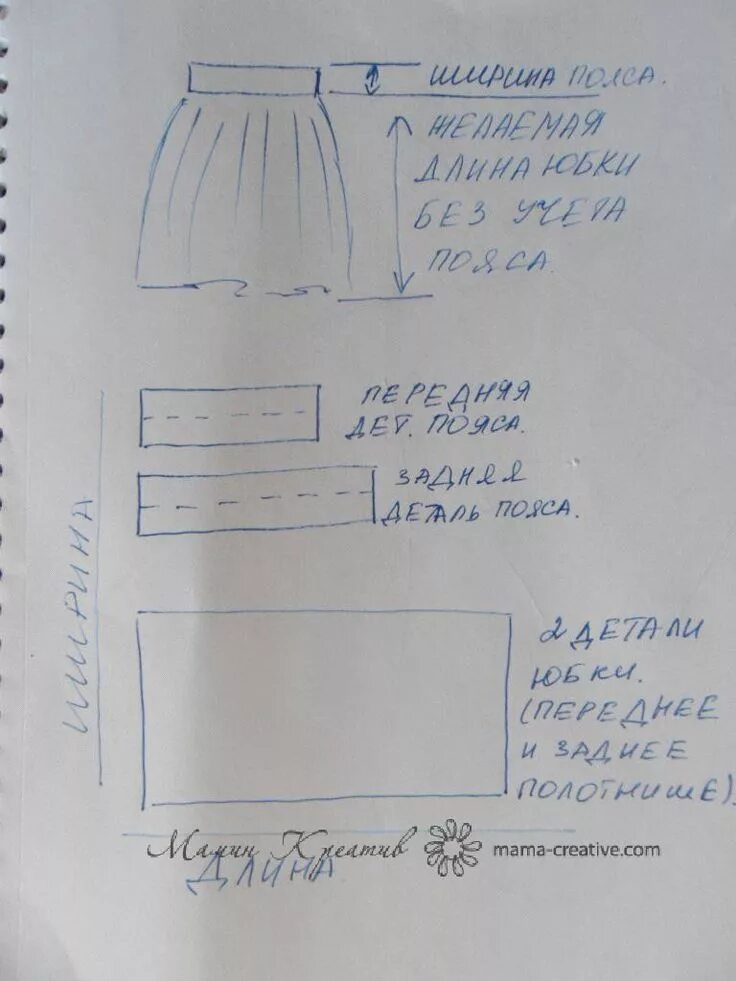 ШИРИНА ПОЯСА.
ЖЕЛАЕМАЯ
ДЛИНА ЮБКИ
БЕЗ УЧЕТА
ПОЯСА
ПЕРЕДНЯЯ
ДЕТ. ПОЯСА.
ЗАДНЯЯ
ДЕТАЛЬ ПОЯСА.
ШИРИНА
2 ДЕТАЛИ
ЮБКИ.
(ПЕРЕДНЕЕ
И ЗАДНЕЕ
ПОЛОТНИШЕ).
Мамин Креатив mama-creative.com
ДЛИНА